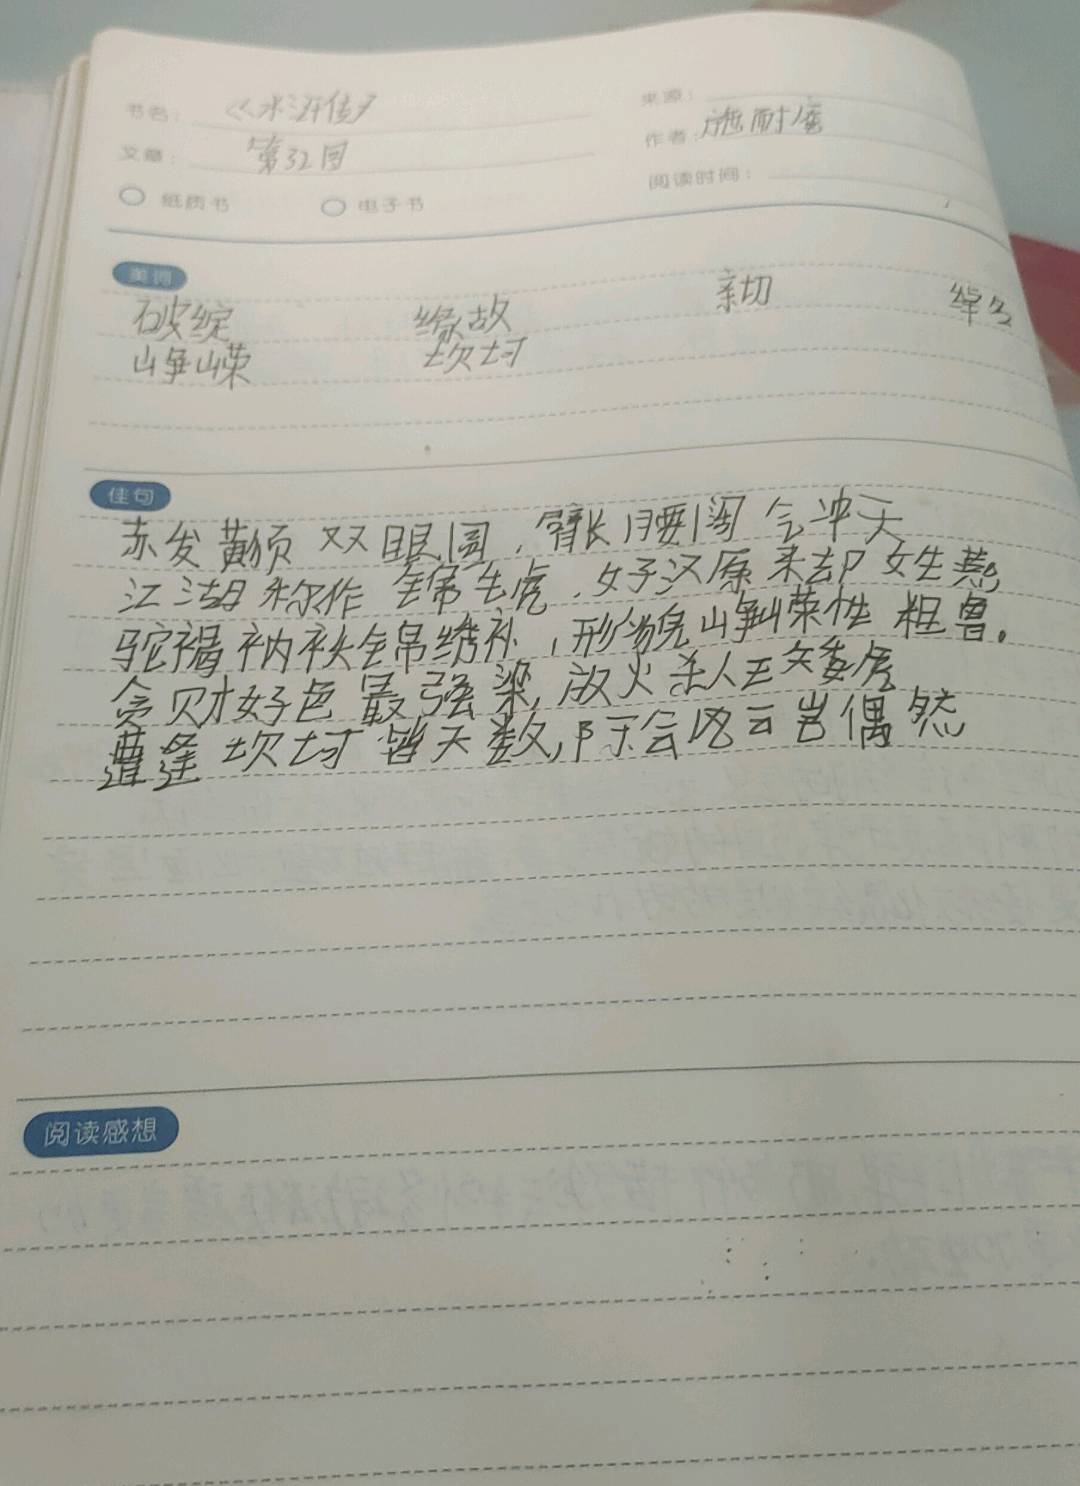 书名： 《水浒传》
来源：
文章： 第32回
作者： 施耐庵
纸质书 电子书
阅读时间：
美词
破绽 缘故 亲切 绰名
峥嵘 坎坷
佳句
赤发黄须双眼圆，臂长腰阔气冲天
江湖称作锦毛虎，好汉原来却姓燕
驼褐衲袄锦绣补，形貌峥嵘性粗卤。
贪财好色最强梁，放火杀人王矮虎
遭逢坎坷皆天数，际会风云岂偶然
阅读感想